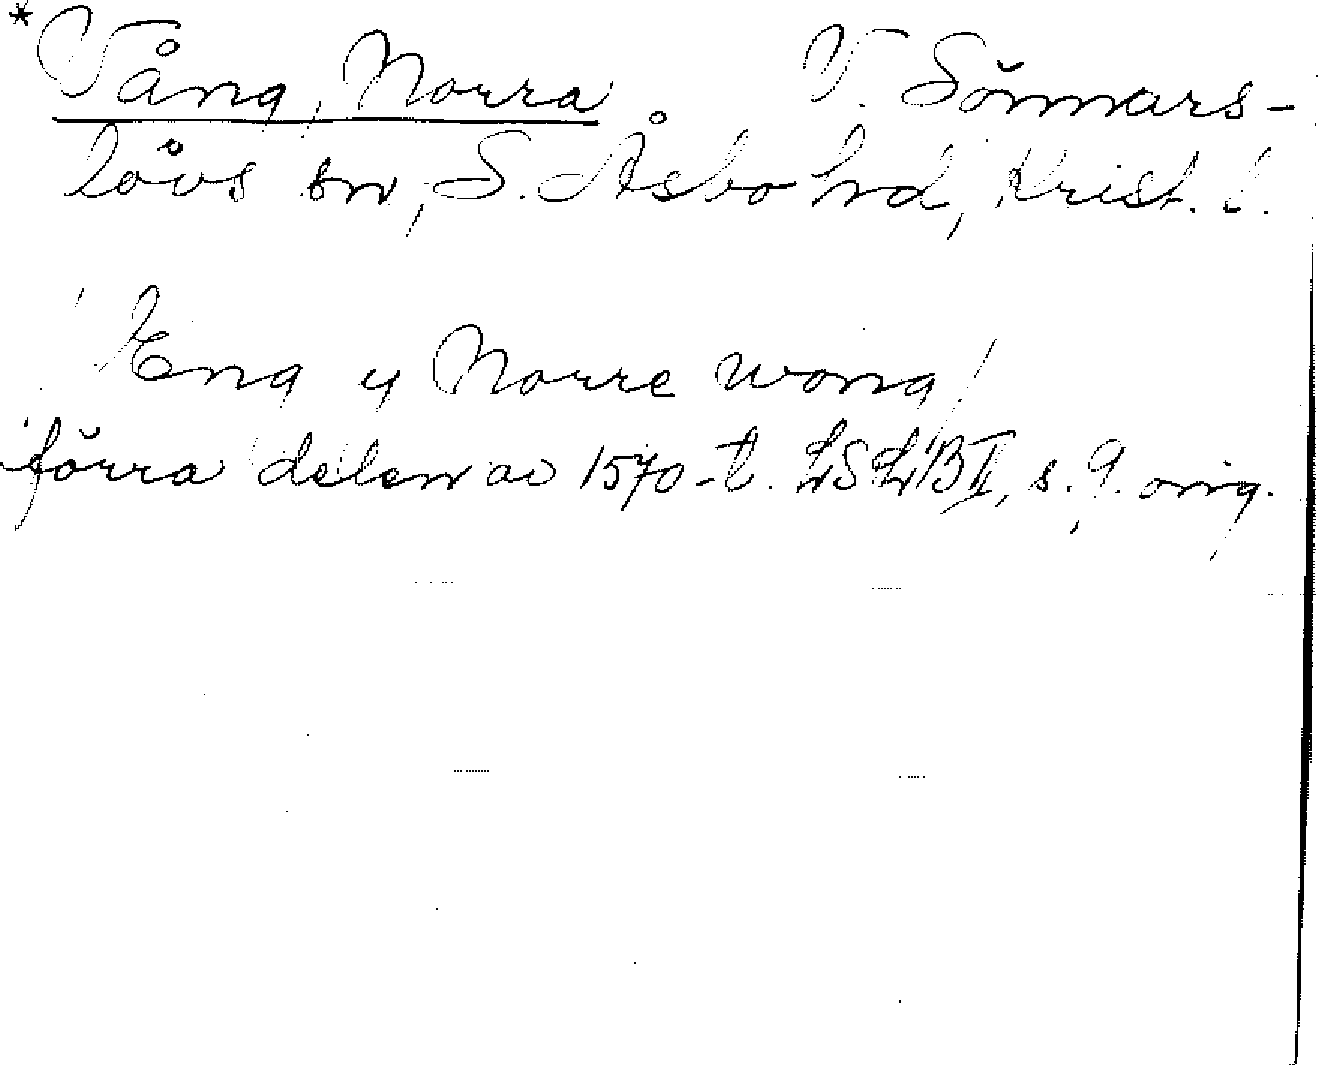 *Vång, Norra. V. Sönnars-
lövs sn, S. Åsbo hd, Krist. l.
Eng y Norre wong/
förra delen av 1570-t. LSLB II, s. 9. orig.